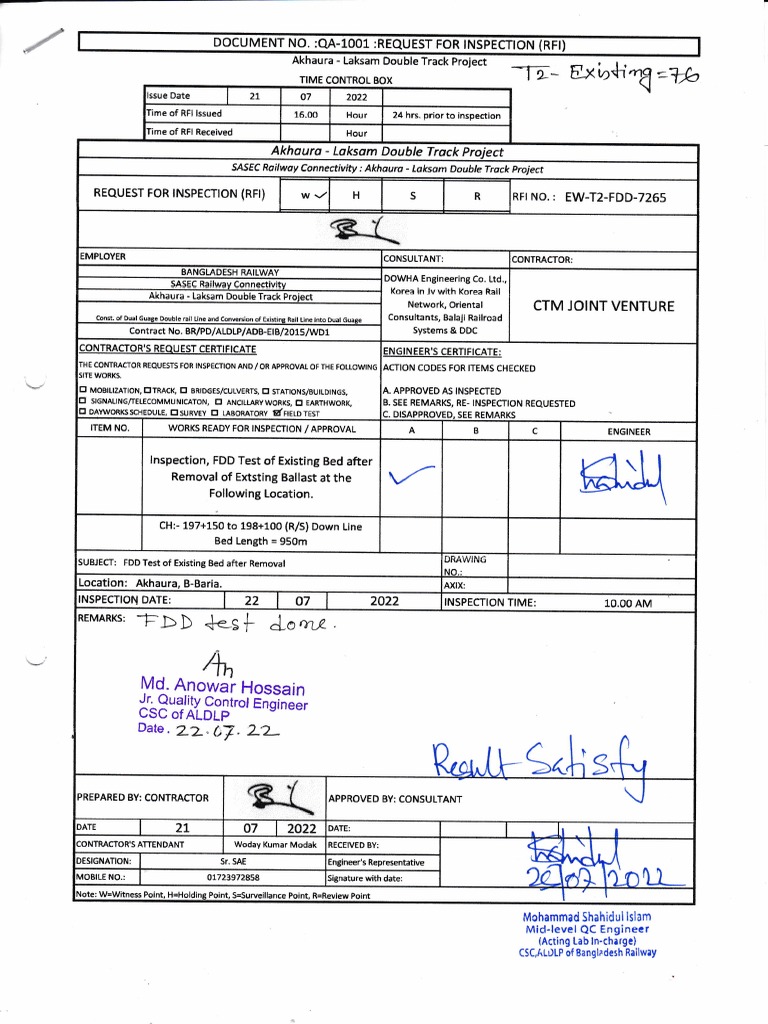 DOCUMENT NO. :QA-1001 :REQUEST FOR INSPECTION (RFI)
Akhaura - Laksam Double Track Project
T2- Existing=76
TIME CONTROL BOX
Issue Date 21 07 2022
Time of RFI Issued 16.00 Hour 24 hrs. prior to inspection
Time of RFI Received Hour
Akhaura - Laksam Double Track Project
SASEC Railway Connectivity : Akhaura - Laksam Double Track Project
REQUEST FOR INSPECTION (RFI) W ✓ H S R RFI NO. : EW-T2-FDD-7265
EMPLOYER CONSULTANT: CONTRACTOR:
BANGLADESH RAILWAY
SASEC Railway Connectivity
Akhaura - Laksam Double Track Project
Const. of Dual Guage Double rail Line and Conversion of Existing Rail Line into Dual Guage
Contract No. BR/PD/ALDLP/ADB-EIB/2015/WD1
DOWHA Engineering Co. Ltd.,
Korea in Jv with Korea Rail
Network, Oriental
Consultants, Balaji Railroad
Systems & DDC
CTM JOINT VENTURE
CONTRACTOR'S REQUEST CERTIFICATE
THE CONTRACTOR REQUESTS FOR INSPECTION AND / OR APPROVAL OF THE FOLLOWING
SITE WORKS.
☐ MOBILIZATION, ☐ TRACK, ☐ BRIDGES/CULVERTS, ☐ STATIONS/BUILDINGS,
☐ SIGNALING/TELECOMMUNICATON, ☐ ANCILLARY WORKS, ☐ EARTHWORK,
☐ DAYWORKS SCHEDULE, ☐ SURVEY ☐ LABORATORY ☑ FIELD TEST
ENGINEER'S CERTIFICATE:
ACTION CODES FOR ITEMS CHECKED
A. APPROVED AS INSPECTED
B. SEE REMARKS, RE- INSPECTION REQUESTED
C. DISAPPROVED, SEE REMARKS
ITEM NO. WORKS READY FOR INSPECTION / APPROVAL A B C ENGINEER
Inspection, FDD Test of Existing Bed after
Removal of Extsting Ballast at the
Following Location.
✓
Kshidul
CH:- 197+150 to 198+100 (R/S) Down Line
Bed Length = 950m
SUBJECT: FDD Test of Existing Bed after Removal
DRAWING
NO.:
Location: Akhaura, B-Baria. AXIX:
INSPECTION DATE: 22 07 2022 INSPECTION TIME: 10.00 AM
REMARKS: FDD test done.
Md. Anowar Hossain
Jr. Quality Control Engineer
CSC of ALDLP
Date . 22.07.22
Result Satisfy
PREPARED BY: CONTRACTOR APPROVED BY: CONSULTANT
DATE 21 07 2022 DATE:
CONTRACTOR'S ATTENDANT Woday Kumar Modak RECEIVED BY:
DESIGNATION: Sr. SAE Engineer's Representative
MOBILE NO.: 01723972858 Signature with date:
Note: W=Witness Point, H=Holding Point, S=Surveillance Point, R=Review Point
Mohammad Shahidul Islam
Mid-level QC Engineer
(Acting Lab In-charge)
CSC,ALDLP of Bangladesh Railway